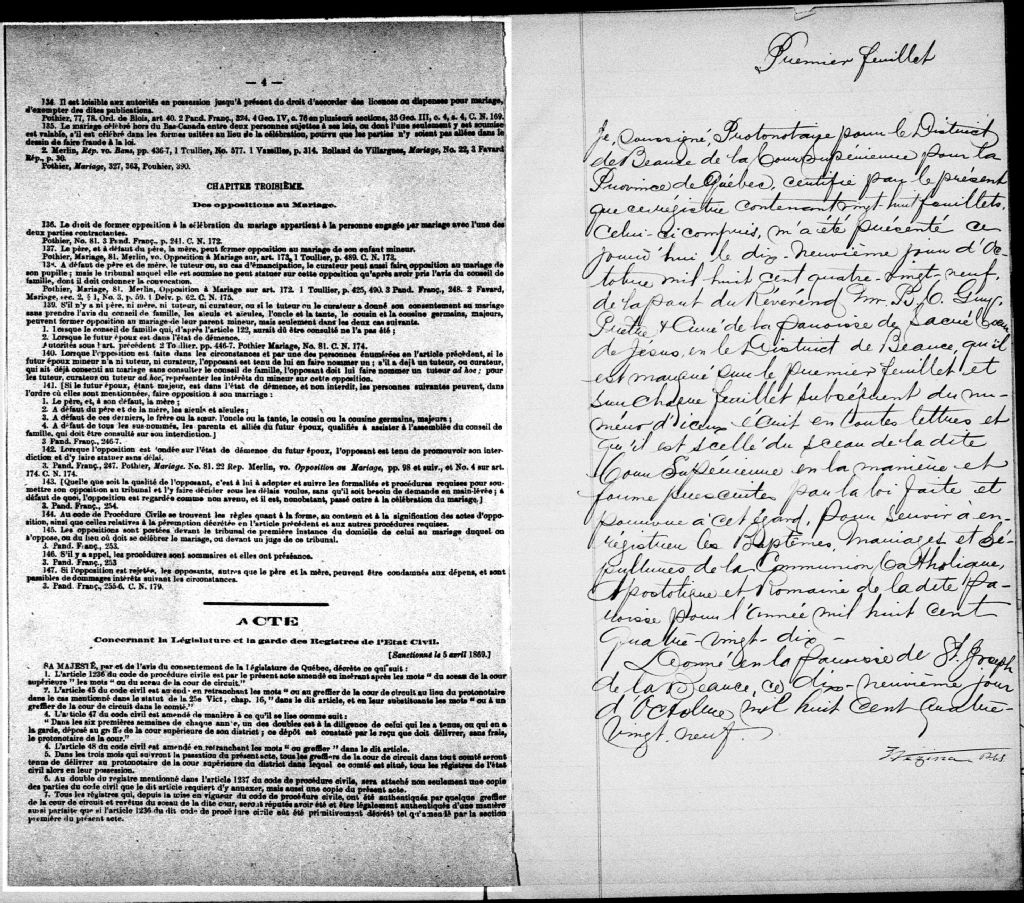 — 4 —
134. Il est loisible aux autorités en possession jusqu'à présent du droit d'accorder des licences ou dispenses pour mariage,
d'exempter des dites publications.
Pothier, 77, 78. Ord. de Blois, art 40. 2 Pand. Franç., 324. 4 Geo. IV, c. 76 en plusieurs sections, 35 Geo. III, c. 4, s. 4, C. N. 169.
135. Le mariage célébré hors du Bas-Canada entre deux personnes sujettes à ses lois, ou dont l'une seulement y est soumise
est valable, s'il est célébré dans les formes usitées au lieu de la célébration, pourvu que les parties n'y soient pas allées dans le
dessin de faire fraude à la loi.
2. Merlin, Rép. vo. Bans, pp. 436-7, 1 Toullier, No. 577. 1 Vazeilles, p. 314. Rolland de Villargues, Mariage, No. 22, 3 Favard
Rép., p. 30.
Pothier, Mariage, 327, 363, Pouhier, 390.
CHAPITRE TROISIÈME.
Des oppositions au Mariage.
136. Le droit de former opposition à la célébration du mariage appartient à la personne engagée par mariage avec l'une des
deux parties contractantes.
Pothier, No. 81. 3 Pand. Franç., p. 241. C. N. 172.
137. Le père, et à défaut du père, la mère, peut former opposition au mariage de son enfant mineur.
Pothier, Mariage, 81. Merlin, vo. Opposition à Mariage sur, art. 173, 1 Toullier, p. 489. C. N. 173.
138. A défaut de père et de mère, le tuteur ou, au cas d'émancipation, le curateur peut aussi faire opposition au mariage de
son pupille; mais le tribunal auquel elle est soumise ne peut statuer sur cette opposition qu'après avoir pris l'avis du conseil de
famille, dont il doit ordonner la convocation.
Pothier, Mariage, 81. Merlin, Opposition à Mariage sur art. 172. 1 Toullier, p. 425, 490. 3 Pand. Franç., 248. 2 Favard,
Mariage, sec. 2, § 1, No. 3, p. 59. 1 Delv. p. 62. C. N. 175.
139. S'il n'y a ni père, ni mère, ni tuteur, ni curateur, ou si le tuteur ou le curateur a donné son consentement au mariage
sans prendre l'avis du conseil de famille, les aïeuls et aïeules, l'oncle et la tante, le cousin et la cousine germains, majeurs,
peuvent former opposition au mariage de leur parent mineur, mais seulement dans les deux cas suivants.
1. Lorsque le conseil de famille qui, d'après l'article 122, aurait dû être consulté ne l'a pas été;
2. Lorsque le futur époux est dans l'état de démence.
Autorités sous l'art. précédent 2 Toullier, pp. 446-7. Pothier Mariage, No. 81. C. N. 174.
140. Lorsque l'opposition est faite dans les circonstances et par une des personnes énumérées en l'article précédent, si le
futur époux mineur n'a ni tuteur, ni curateur, l'opposant est tenu de lui en faire nommer un; s'il a déjà un tuteur, ou curateur,
qui ait déjà consenti au mariage sans consulter le conseil de famille, l'opposant doit lui faire nommer un tuteur ad hoc; pour
les tuteur, curateur ou tuteur ad hoc, représenter les intérêts du mineur sur cette opposition.
141. [Si le futur époux, étant majeur, est dans l'état de démence, et non interdit, les personnes suivantes peuvent, dans
l'ordre où elles sont mentionnées, faire opposition à son mariage:
1. Le père, et, à son défaut, la mère;
2. A défaut du père et de la mère, les aïeuls et aïeules;
3. A défaut de ces derniers, le frère ou la sœur, l'oncle ou la tante, le cousin ou la cousine germains, majeurs;
4. A défaut de tous les sus-nommés, les parents et alliés du futur époux, qualifiés à assister à l'assemblée du conseil de
famille, qui doit être consulté sur son interdiction.]
3 Pand. Franç., 246-7.
142. Lorsque l'opposition est fondée sur l'état de démence du futur époux, l'opposant est tenu de promouvoir son inter-
diction et d'y faire statuer sans délai.
3. Pand. Franç., 247. Pothier, Mariage. No. 81. 22 Rep. Merlin, vo. Opposition au Mariage, pp. 98 et suiv., et No. 4 sur art.
174. C. N. 174.
143. [Quelque soit la qualité de l'opposant, c'est à lui à adopter et suivre les formalités et procédures requises pour sou-
mettre son opposition au tribunal et l'y faire décider sous les délais voulus, sans qu'il soit besoin de demande en main-levée; à
défaut de quoi, l'opposition est regardée comme non avenu, et il est, nonobstant, passé outre à la célébration du mariage.]
3. Pand. Franç., 254.
144. Au code de Procédure Civile se trouvent les règles quant à la forme, au contenu et à la signification des actes d'oppo-
sition, ainsi que celles relatives à la péremption décrétée en l'article précédent et aux autres procédures requises.
145. Les oppositions sont portées devant le tribunal de première instance du domicile de celui au mariage duquel on
s'oppose, ou du lieu où doit se célébrer le mariage, ou devant un juge de ce tribunal.
3. Pand. Franç., 253.
146. S'il y a appel, les procédures sont sommaires et elles ont préséance.
3. Pand. Franç., 253
147. Si l'opposition est rejetée, les opposants, autres que le père et la mère, peuvent être condamnés aux dépens, et sont
passibles de dommages intérêts suivant les circonstances.
3. Pand. Franç., 255-6. C. N. 179.
ACTE
Concernant la Législature et la garde des Registres de l'Etat Civil.
[Sanctionné le 5 avril 1869.]
SA MAJESTÉ, par et de l'avis du consentement de la Législature de Québec, décrète ce qui suit:
1. L'article 1236 du code de procédure civile est par le présent acte amendé en insérant après les mots "du sceau de la cour
supérieure" les mots "ou du sceau de la cour de circuit."
7. L'article 45 du code civil est amendé en retranchant les mots "ou au greffier de la cour de circuit au lieu du protonotaire
dans le cas mentionné dans le statut de la 25e Vict., chap. 16," dans le dit article, et en leur substituant les mots "ou à un
greffier de la cour de circuit dans le comté."
4. L'article 47 du code civil est amendé de manière à ce qu'il se lise comme suit:
"Dans les six premières semaines de chaque année, un des doubles est à la diligence de celui qui les a tenus, ou qui en a
la garde, déposé au greffe de la cour supérieure de son district; ce dépôt est constaté par le reçu que doit délivrer, sans frais,
le protonotaire de la cour."
4. L'article 48 du code civil est amendé en retranchant les mots "ou greffier" dans le dit article.
5. Dans les trois mois qui suivront la passation du présent acte, tous les greffiers de la cour de circuit dans tout comté seront
tenus de délivrer au protonotaire de la cour supérieure du district dans lequel ce comté est situé, tous les registres de l'état
civil alors en leur possession.
6. Au double du registre mentionné dans l'article 1237 du code de procédure civile, sera attaché non seulement une copie
des parties du code civil que le dit article requiert d'y annexer, mais aussi une copie du présent acte.
7. Tous les registres qui, depuis la mise en vigueur du code de procédure civile, ont été authentiqués par quelque greffier
de la cour de circuit et revêtus du sceau de la dite cour, seront réputés avoir été et être légalement authentiqués d'une manière
aussi parfaite que si l'article 1236 du dit code de procédure civile eût été primitivement décrété tel qu'amendé par la section
première du présent acte.
Premier feuillet
Je, soussigné, Protonotaire pour le District
de Beauce de la Cour Supérieure pour la
Province de Québec, certifie par le présent
que ce régistre contenant vingt huit feuillets,
Celui-ci compris, m'a été présenté ce
jourd'hui le dix-neuvième jour d'Oc-
tobre mil huit cent quatre-vingt-neuf,
de la part du Révérend Mr. B. C. Guy,
Prêtre & Curé de la paroisse de Sacré Coeur
de Jésus, en le District de Beauce, qu'il
est marqué sur le premier feuillet et
sur chaque feuillet subséquent du nu-
méro d'icelui écrit en toutes lettres et
qu'il est scellé du sceau de la dite
Cour Supérieure en la manière et
forme prescrites par la loi faite et
pourvue à cet égard, pour servir a en-
régistrer les Baptêmes, Mariages et Sé-
pultures de la Communion Catholique,
Apostolique et Romaine de la dite pa-
roisse pour l'année mil huit cent
quatre-vingt-dix -
Donné en la paroisse de St. Joseph
de la Beauce, ce dix-neuvième jour
d'Octobre, mil huit cent quatre-
vingt-neuf.
Vézina P.C.S.